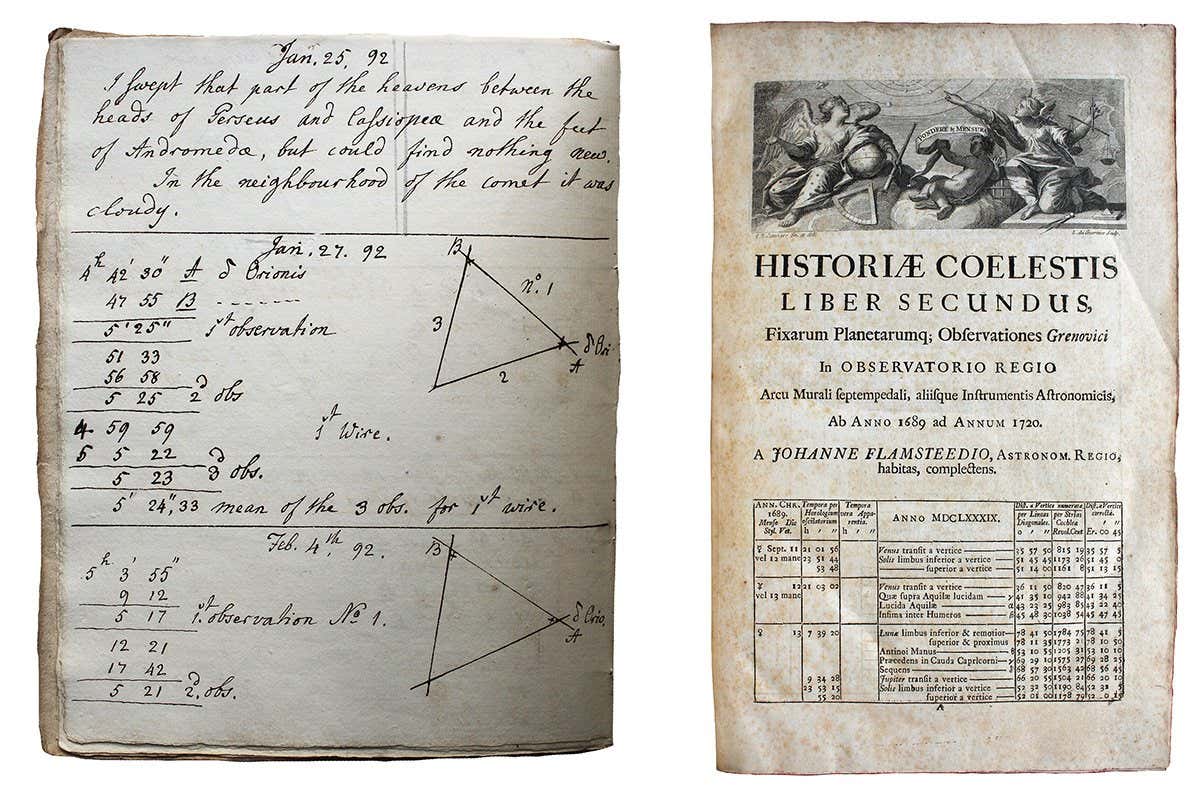 Jan. 25, 92
I swept that part of the heavens between the
heads of Perseus and Cassiopeæ and the feet
of Andromedæ, but could find nothing new.
In the neighbourhood of the comet it was
cloudy.
Jan. 27. 92
4h 42' 30" A δ Orionis
47 55 B - - - - - -
5' 25" 1st observation
51 33
56 58
5 25 2d obs
4 59 59
5 5 22
5 23 3d obs.
1st Wire.
5' 24",33 mean of the 3 obs. for 1st wire.
B
No. 1
3
δ Ori
A
2
Feb. 4th, 92.
5h 3' 55"
9 12
5 17 1st observation No 1.
12 21
17 42
5 21 2d obs.
B
δ Orio.
A
PONDERE & MENSURA
HISTORIÆ COELESTIS
LIBER SECUNDUS,
Fixarum Planetarumq; Observationes Grenovici
In OBSERVATORIO REGIO
Arcu Murali septempedali, aliisque Instrumentis Astronomicis,
Ab ANNO 1689 ad ANNUM 1720.
A JOHANNE FLAMSTEEDIO, ASTRONOM. REGIO,
habitas, complectens.
ANN. CHR. 1689. Mense Die Styl. Vet.
Tempora per Horologium oscillatorium h ' "
Tempora vera Apparentia. h ' "
ANNO MDCLXXXIX.
Dist. a Vertice numerata
per Lineas Diagonales. o ' "
per Strias Cochleæ Revol. Cent
Dist. a Vertice correcta. ' " Er. 00 45
☿ Sept. 11 21 01 56 Venus transit a vertice 35 57 50 815 19 35 57 5
vel 12 mane 23 51 44 Solis limbus inferior a vertice 51 45 45 1173 26 51 45 0
53 48 superior a vertice 51 14 00 1161 8 51 13 15
12 21 03 02 Venus transit a vertice 36 11 50 820 47 36 11 5
vel 13 mane Quæ supra Aquilæ lucidam γ 41 35 10 942 88 41 34 25
Lucida Aquilæ α 43 23 25 983 85 43 22 40
Infima inter Humeros β 45 48 30 1038 54 45 47 45
♀ 13 7 39 20 Lunæ limbus inferior & remotior 78 41 50 1784 75 78 41 5
superior & proximus 78 11 35 1773 21 78 10 50
Antinoi Manus 53 10 55 1205 31 53 10 10
Præcedens in Cauda Capricorni γ 69 29 10 1575 27 69 28 25
Sequens δ 68 57 30 1563 42 68 56 45
9 34 28 Jupiter transit a vertice 66 20 55 1504 21 66 20 10
23 53 15 Solis limbus inferior a vertice 52 32 50 1190 84 52 32 5
55 20 superior a vertice 52 01 00 1178 79 52 0 15
A